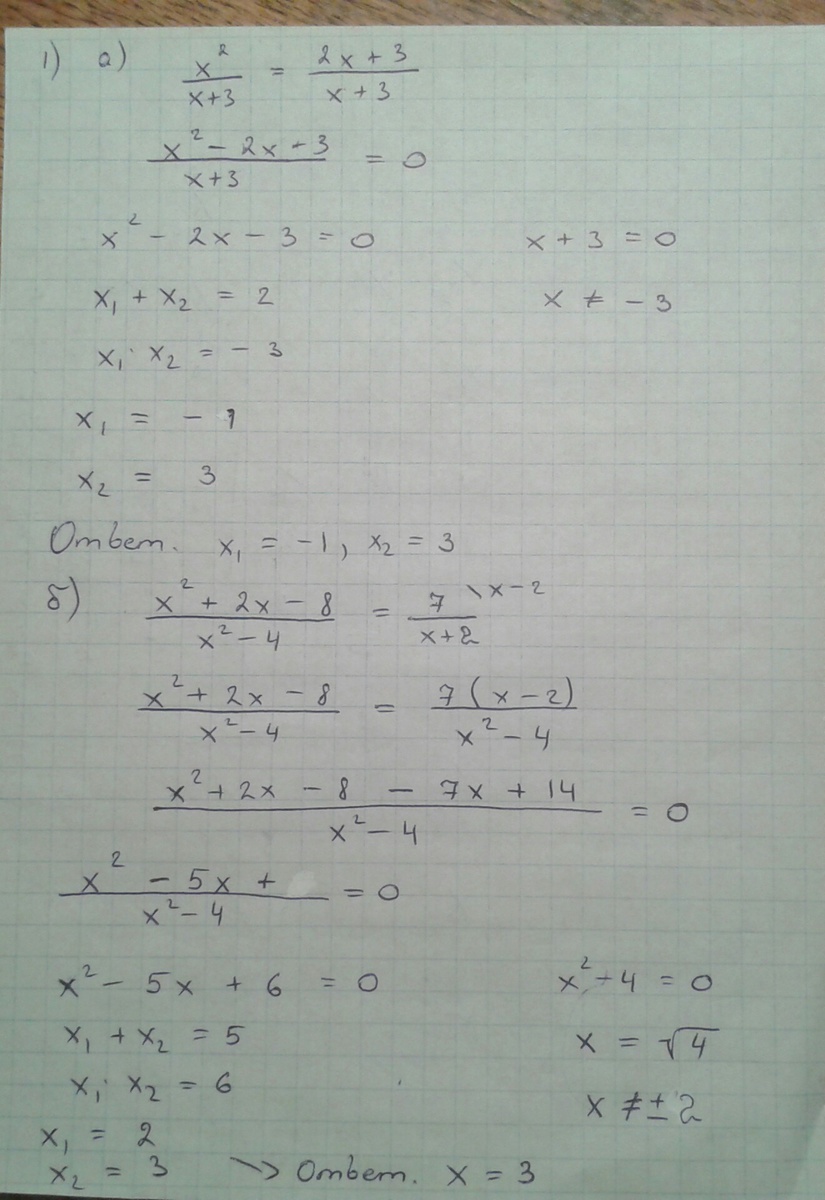 1) а) x²/(x+3) = (2x+3)/(x+3)
(x² - 2x - 3)/(x+3) = 0
x² - 2x - 3 = 0 x + 3 = 0
x₁ + x₂ = 2 x ≠ -3
x₁ · x₂ = -3
x₁ = -1
x₂ = 3
Ответ. x₁ = -1, x₂ = 3
б) (x² + 2x - 8)/(x² - 4) = 7/(x+2) \x-2
(x² + 2x - 8)/(x² - 4) = 7(x-2)/(x² - 4)
(x² + 2x - 8 - 7x + 14)/(x² - 4) = 0
(x² - 5x +)/(x² - 4) = 0
x² - 5x + 6 = 0 x² - 4 = 0
x₁ + x₂ = 5 x = √4
x₁ · x₂ = 6 x ≠ ±2
x₁ = 2
x₂ = 3 → Ответ. x = 3